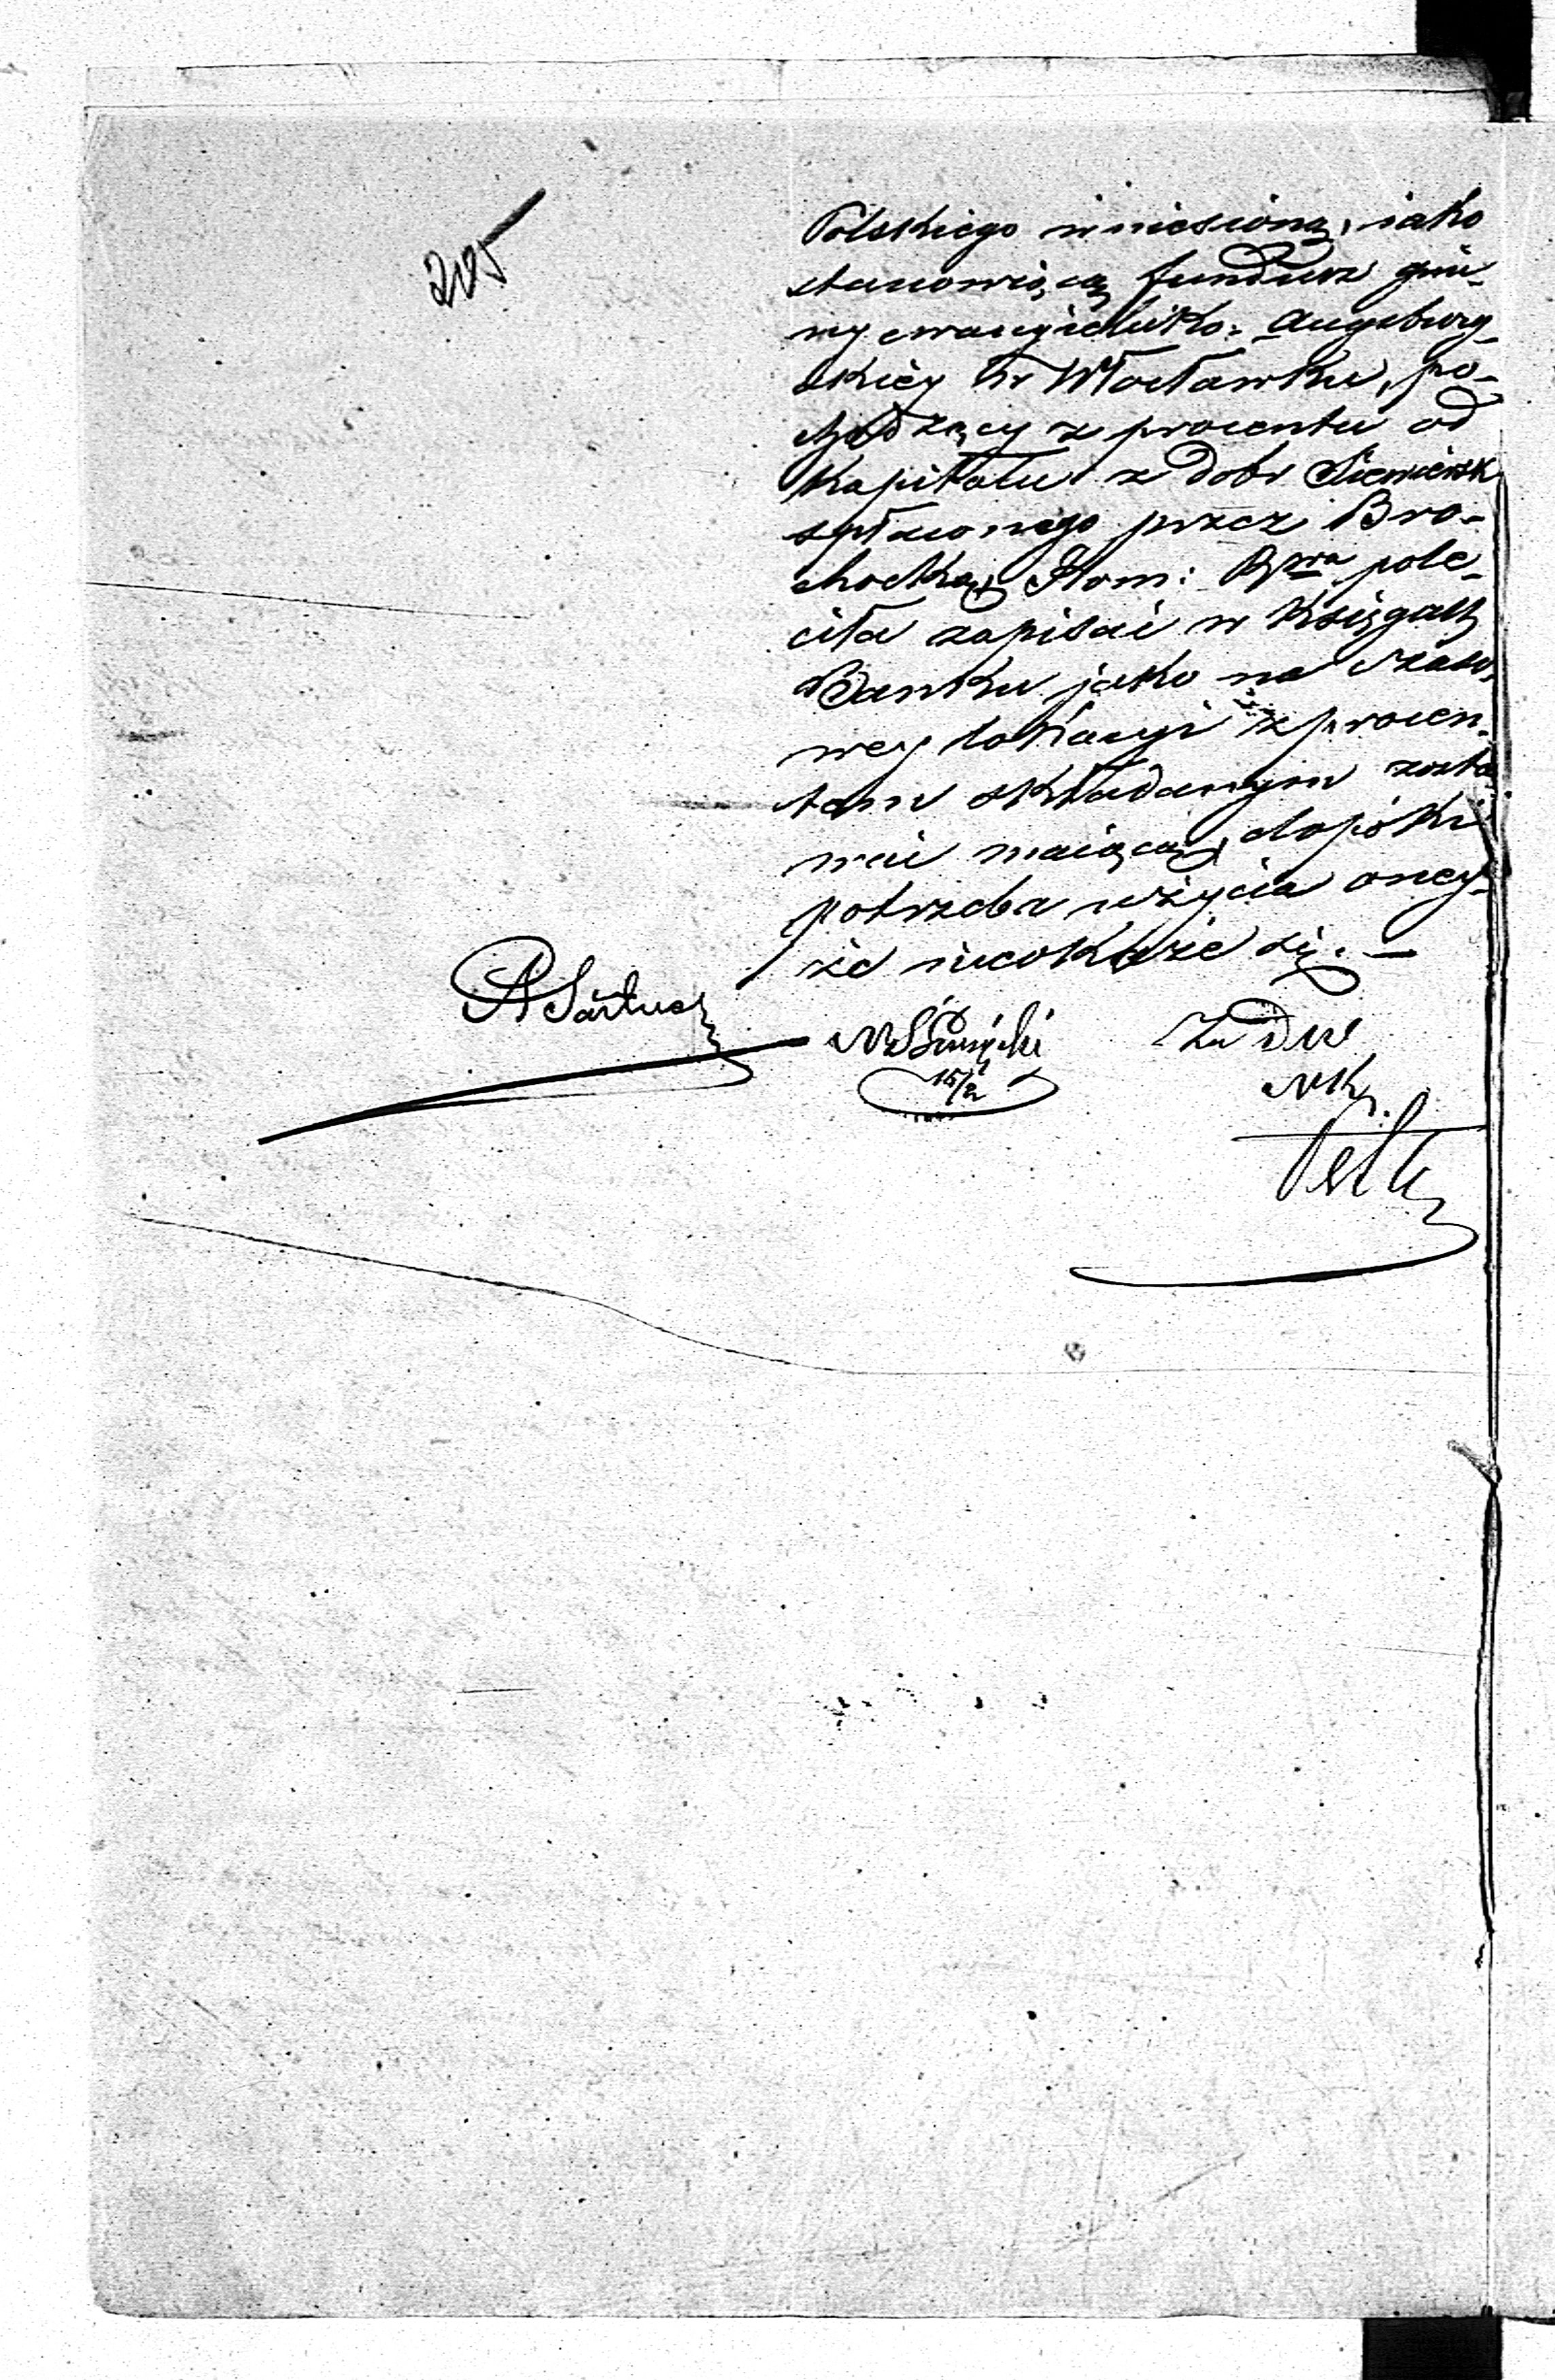 205
Polskiego wniesioną, iako
stanowiącą fundusz gmi-
ny ewangielicko-Augsburg-
skiéy w Włocławku, po-
chodzący z procentu od
Kapitału z dobr
spłaconego przez Bro-
chocką, Kom: pole-
ciła zapisać w Księgach
Banku jako na czaso-
wey lokacyi z procen-
tem składanym zosta
wać maiącą, dopóki
potrzeba użycia oney-
że nieokaże się. —
Za
15/2